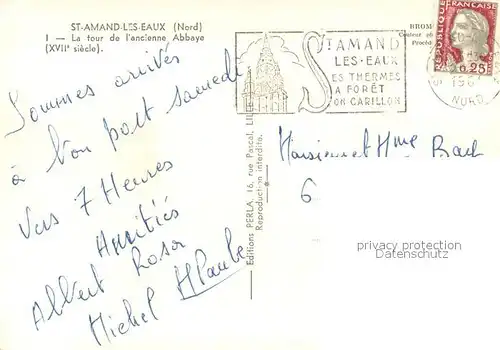 ST-AMAND-LES-EAUX (Nord)
I — La tour de l'ancienne Abbaye
(XVIIe siècle).
BROM
Couleur
Procéd
RÉPUBLIQUE
FRANÇAISE
0,25
196
NORD
ST AMAND
LES·EAUX
SES THERMES
SA FORÊT
SON CARILLON
Sommes arrivés
à bon port samedi
Vers 7 Heures
Amitiés
Albert Rosa
Michel
Editions PERLA, 16, rue Pascal, LILLE
Reproduction interdite.
Monsieur et Mme Bach
6
privacy protection
Datenschutz